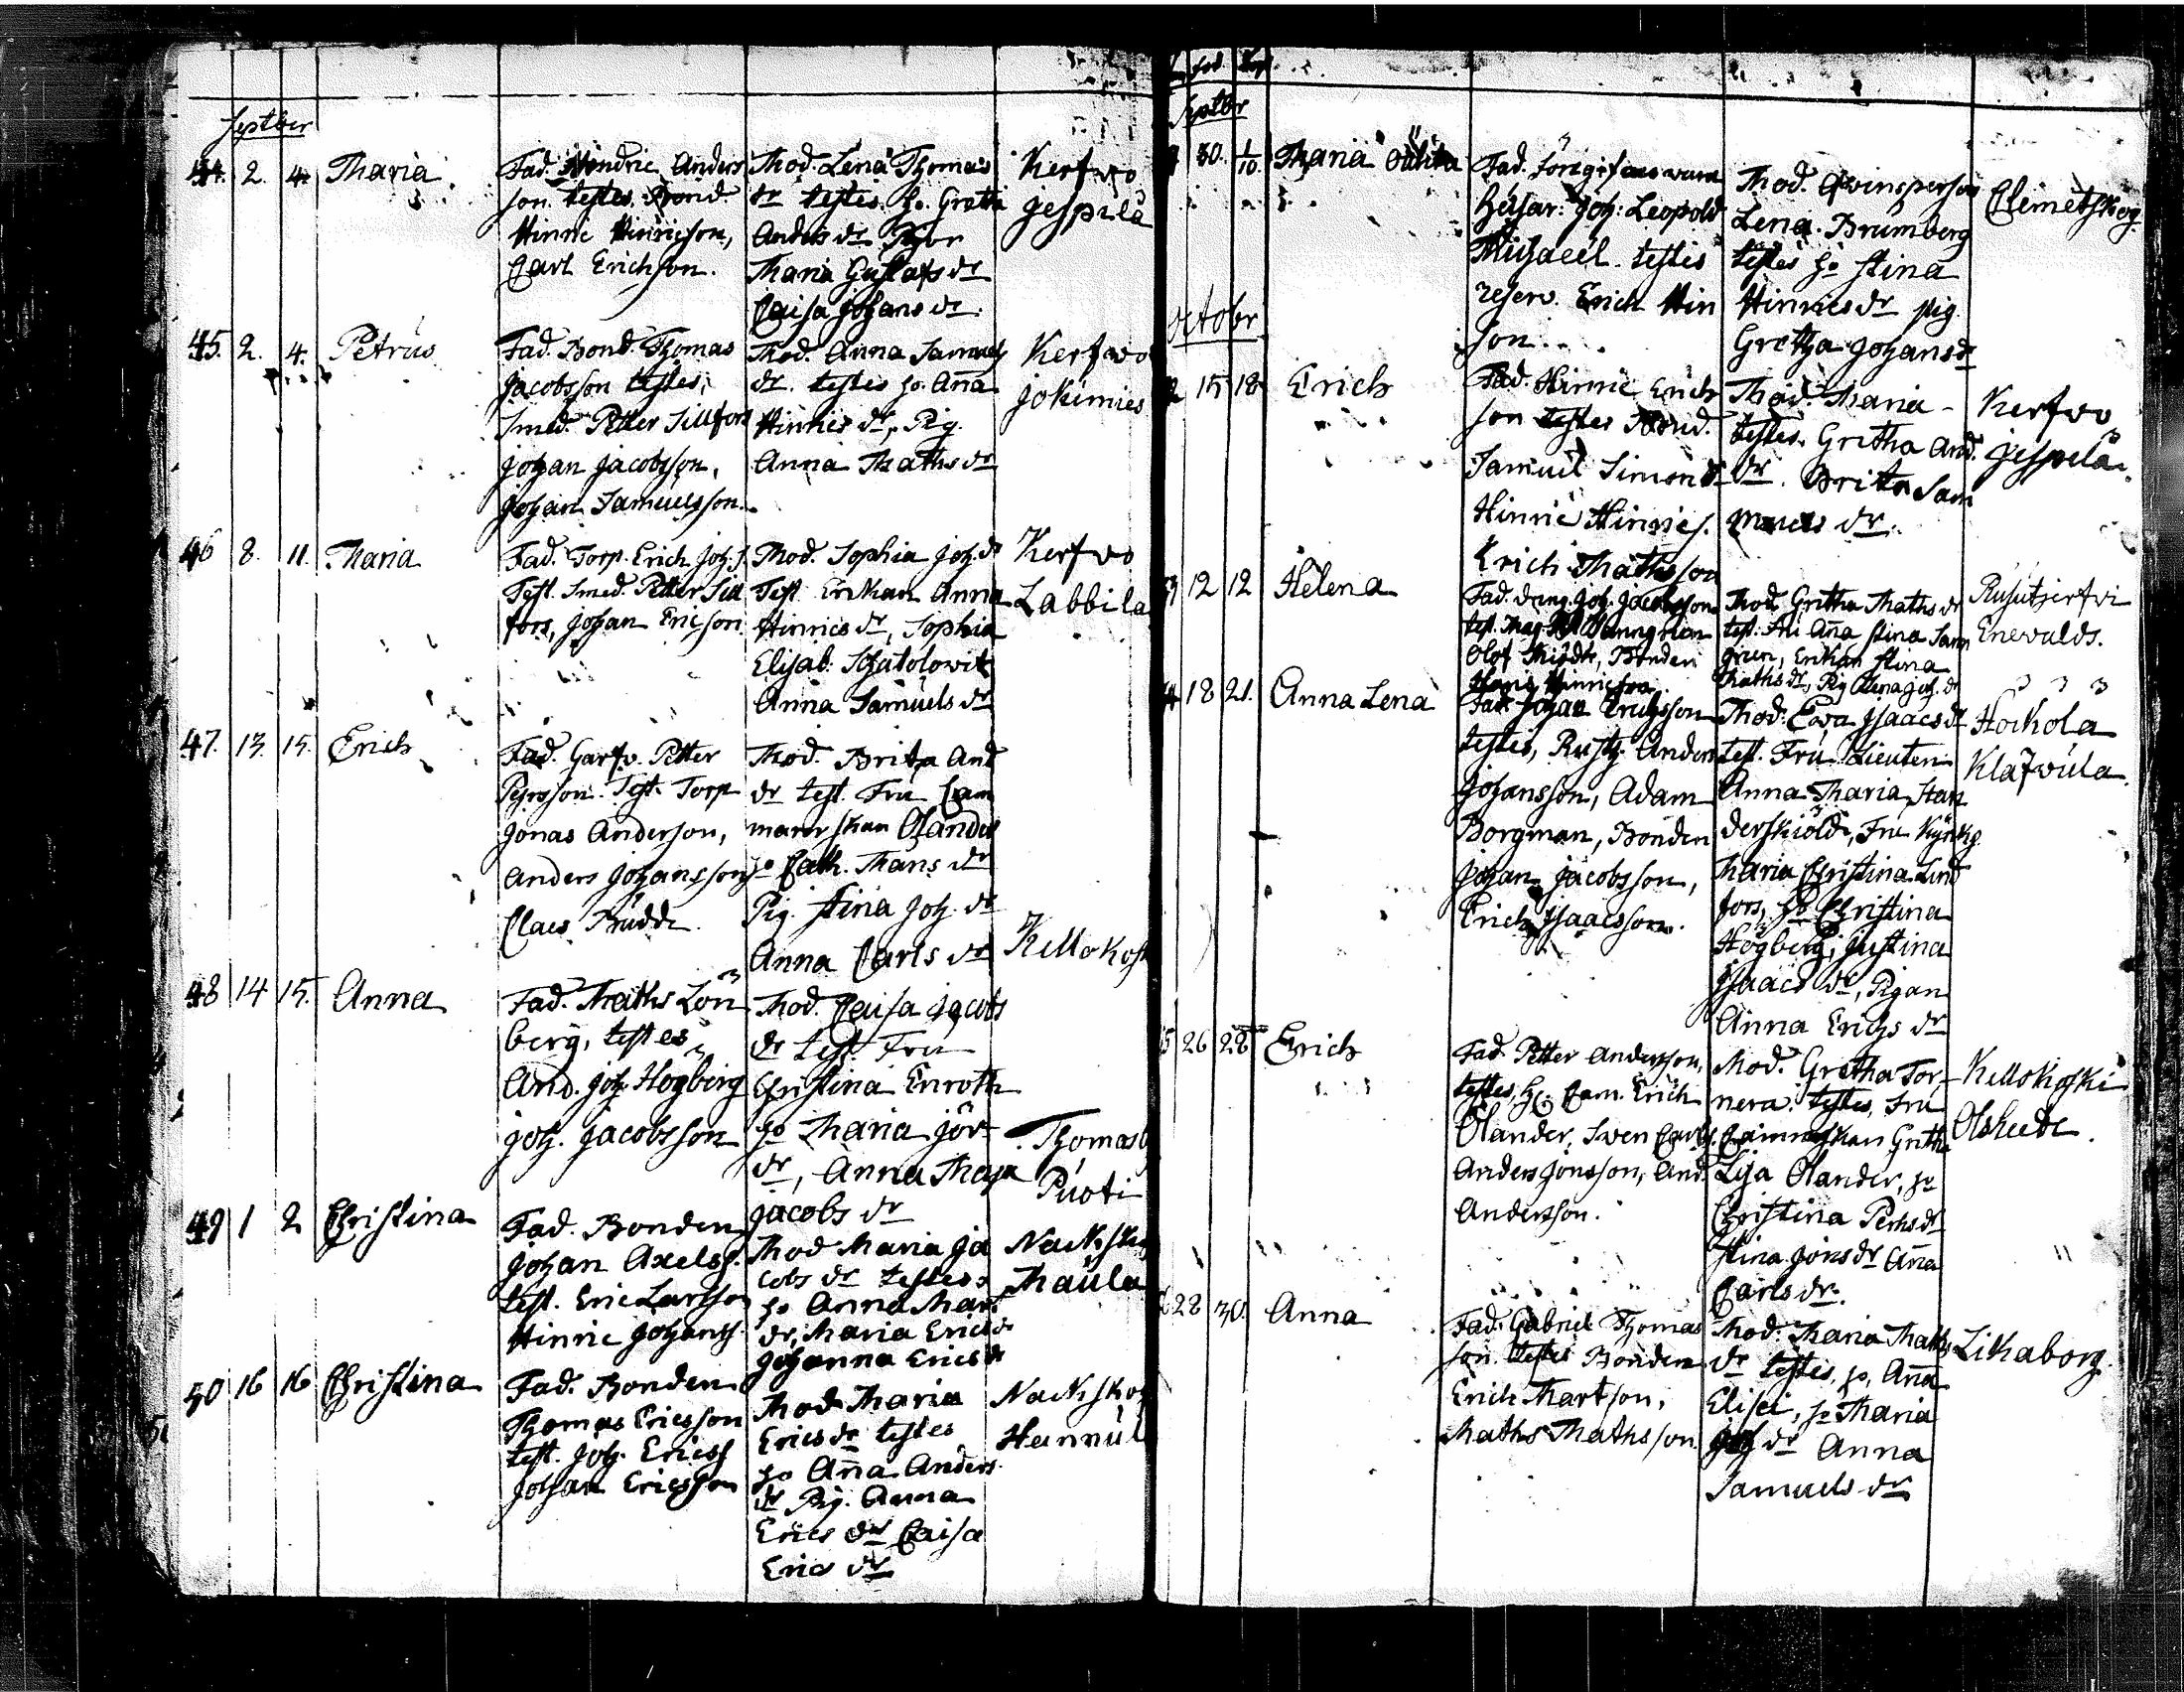 Septber
44. 2. 4. Maria
Fad. Hindric Anders
son. testes. Bond.
Hinric Hinricson,
Carl Erichson.
Mod. Lena Thomas
dr testes. h. Gretha
Anders dr
Maria Gustafs dr
Caisa Johans dr.
Kerfvo
Jespila
45. 2. 4. Petrus
Fad. Bond. Thomas
Jacobsson testes,
Smed. Petter Sillfors
Johan Jacobsson,
Johan Samuelsson.
Mod. Anna Samuels
dr. testes ho. Aña
Hinrics dr, Pig.
Anna Maths dr
Kerfvo
Jokimies
46 8. 11. Maria
Fad. Torp. Erich Joh. s.
Test. Smed. Petter Sill
fors, Johan Ericson.
Mod. Sophia Joh. dr
Test. Enkan Anna
Hinrics dr, Sophia
Elisab.
Anna Samuels dr
Kerfvo
Labbila
47. 13. 15. Erich
Fad. Garfv. Petter
Test. Torp
Jonas Anderson,
Anders Johansson
Claes Budde.
Mod. Brita And
dr test. Fru Cam
marskan Olander
ho Cath. Mans dr
Pig. Stina Joh. dr
Anna Carls dr
Kellokosk
48 14 15. Anna
Fad. Maths Lön
berg, testes
And. Joh. Hogberg
Joh. Jacobsson
Mod. Caisa Jacobs
dr test. Fru
Christina Enroth
ho Maria Jör
dr, Anna Maja
Jacobs dr
Thomasb
Puoti
49 1 2 Christina
Fad. Bonden
Johan Axelss.
test. Eric Larsson
Hinric Johanss.
Mod Maria Ja
cobs dr testes
ho Anna Mart
dr, Maria Erics dr
Johanna Erics dr
Nackskog
Maula
50 16 16 Christina
Fad. Bonden
Thomas Ericsson
test. Joh. Ericss
Johan Ericsson
Mod Maria
Erics dr testes
ho Aña Anders
dr Pig. Anna
Erics dr Caisa
Erics dr
Nackskog
Hannul
Föd.
Septbr
30. 1/10 Maria
Fad.
Husar: Joh: Leopold
testes
reserv. Erich Hin
son.
Mod. Qvinsperson
Lena Brumberg
testes ho Stina
Hinrics dr pig.
Gretha Johans dr
Clemetskog.
Octobr
15 18 Erich
Fad. Hinric Erich
son testes Bond.
Samuel Simons
Hinric Hinrics.
Erich Mathsson
Mod. Maria
testes. Gretha And.
dr. Brita Sam
muels dr.
Kerfvo
Jespila.
12 12 Helena
Fad. dräng Joh. Jacobsson
Olof Bonden
Hans Hinricson.
Mod. Gretha Maths dr
test: Fru Aña Stina
Enkan Stina
Maths dr, Pig Lena Joh. dr
Rusutjerfvi
Enevalds.
18 21. Anna Lena
Fad. Johan Erichsson
testes, Rusth. Anders
Johansson, Adam
Borgman, Bonden
Johan Jacobsson,
Erich Isaacsson.
Mod. Eva Isaacs dr
test. Fru Lieuten:
Anna Maria Stan
derskiöld, Fru
Maria Christina Lind
fors, ho Christina
Högberg, Justina
Isaacs dr, Pigan
Anna Erichs dr
Hockola
Klafvula
26 28 Erich
Fad. Petter Andersson,
testes, Cam. Erich
Olander, Swen Carls.
Anders Jonsson, And.
Andersson.
Mod. Gretha Tor-
nera. testes, Fru
Cammarskan Gretha
Lisa Olander, ho
Christina Pehrs dr
Stina Jöns dr Aña
Carls dr.
Kellokoski
28 30. Anna
Fad. Gabriel Thomas
son. testes Bonden
Erich Martson,
Maths Mathsson.
Mod. Maria Maths
dr testes, ho, Aña
Elisei, ho Maria
Joh dr Anna
Samuels dr
Likaborg